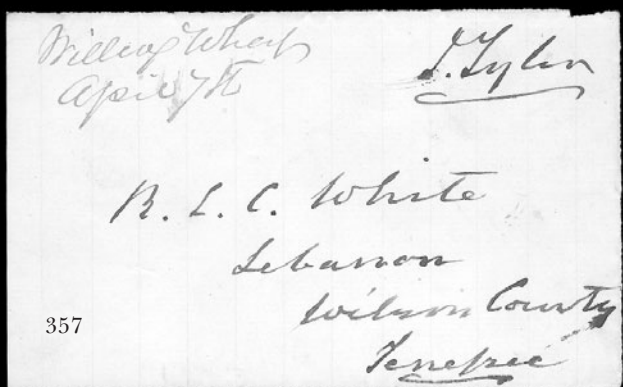 Willcox Wharf
April 7th
J. Tyler
R. L. C. White
Lebanon
Wilson County
Tenessee
357